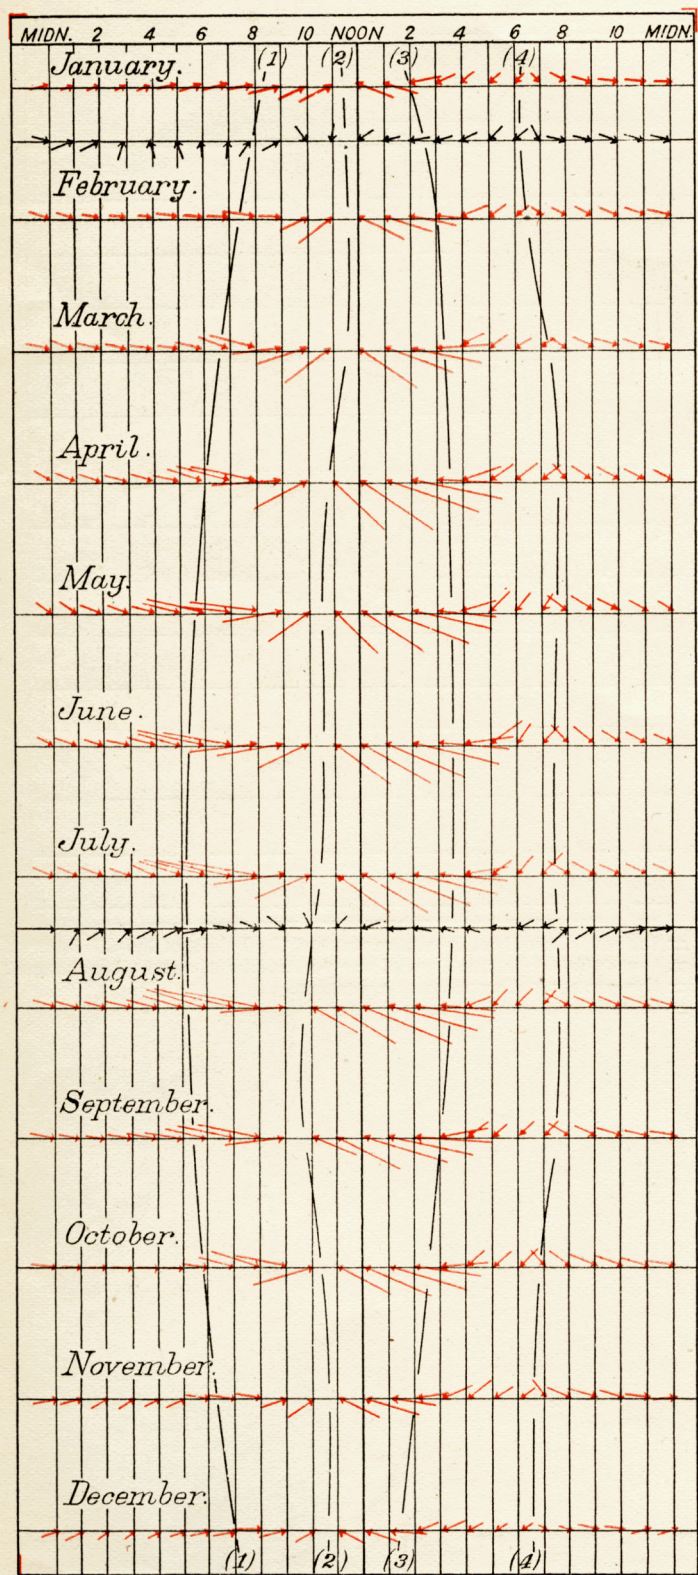 MIDN. 2 4 6 8 10 NOON 2 4 6 8 10 MIDN.
(1) (2) (3) (4)
January.
February.
March.
April.
May.
June.
July.
August.
September.
October.
November.
December.
(1) (2) (3) (4)